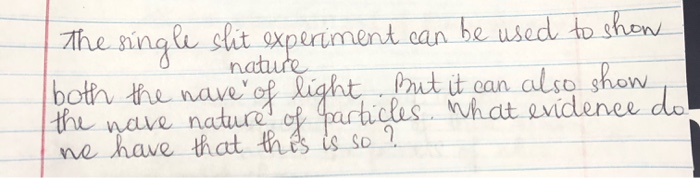 The single slit experiment can be used to show
nature
both the wave of light. But it can also show
the wave nature of particles. What evidence do
we have that this is so?